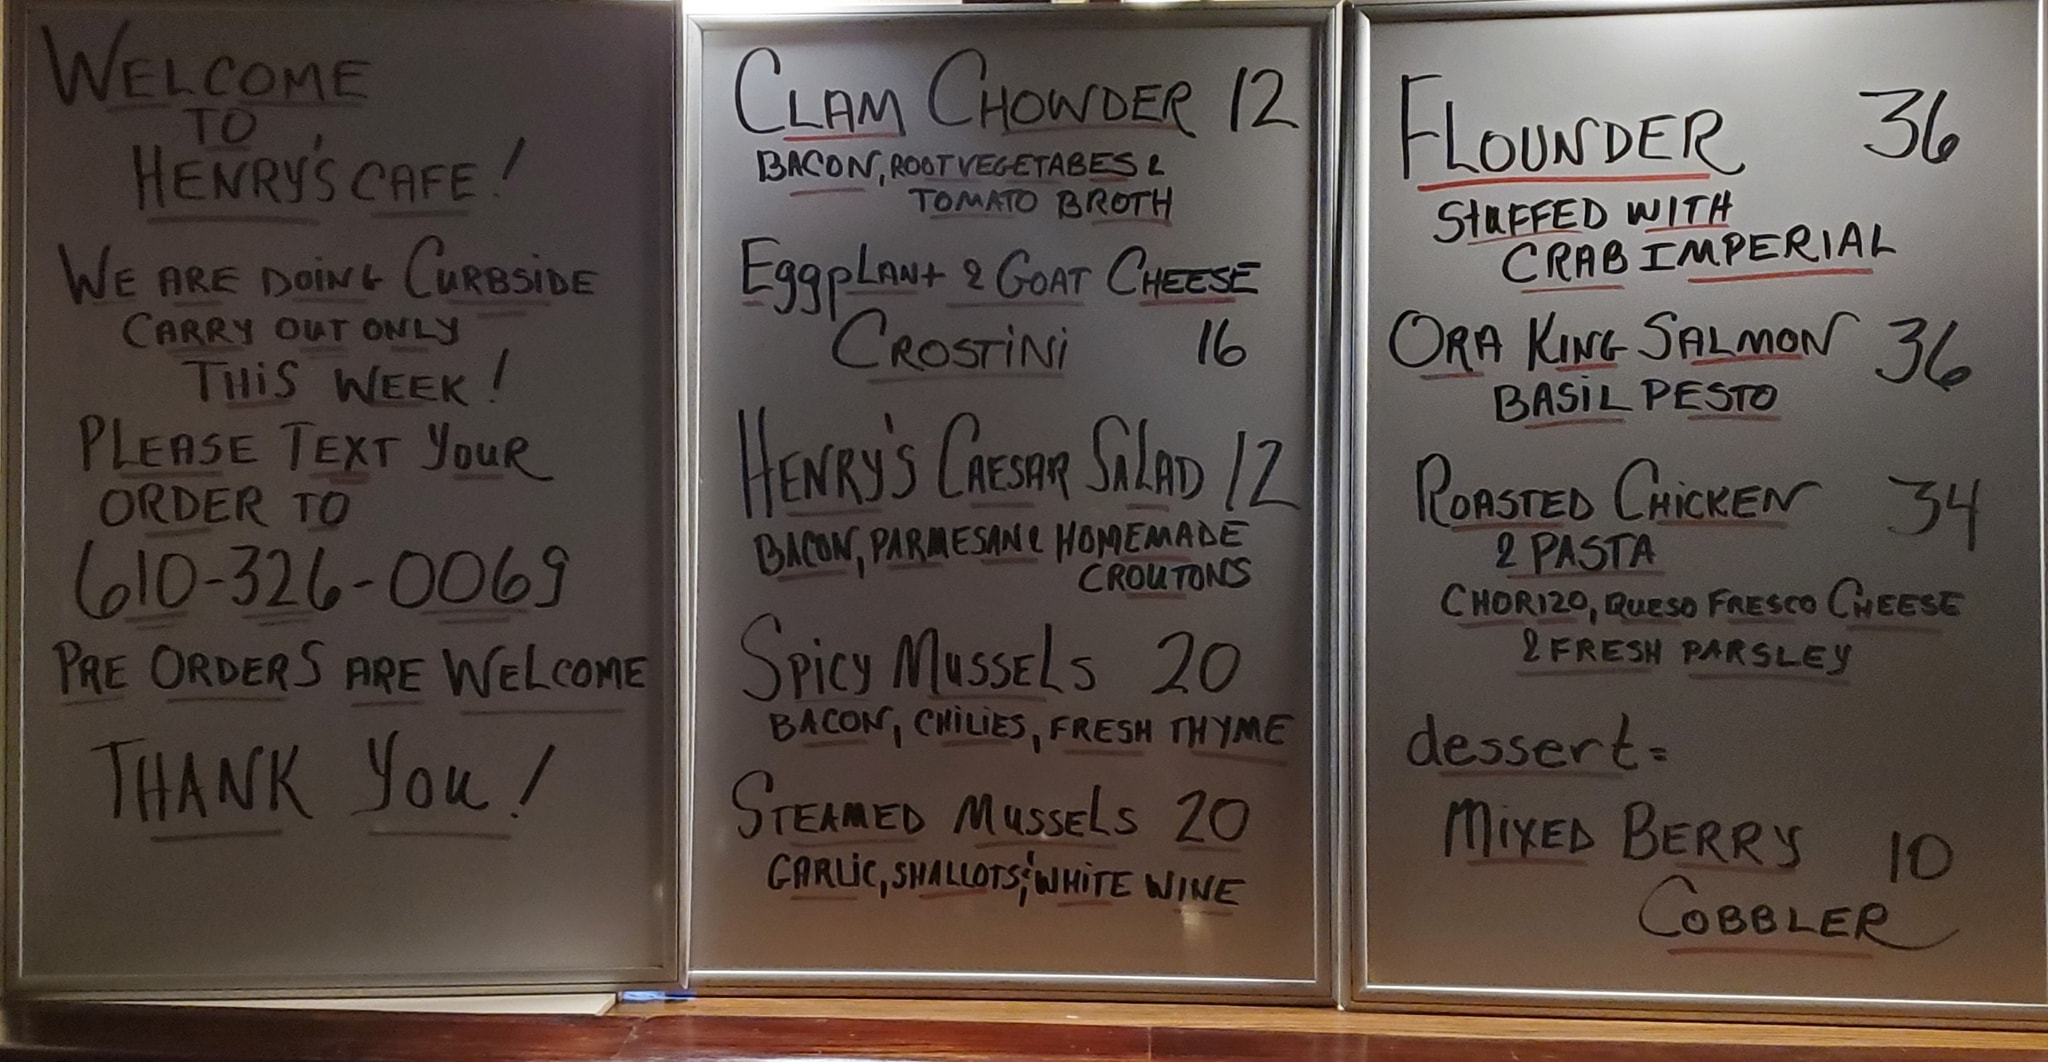 WELCOME
TO
HENRY'S CAFE!
WE ARE DOING CURBSIDE
CARRY OUT ONLY
THIS WEEK!
PLEASE TEXT YOUR
ORDER TO
610-326-0069
PRE ORDERS ARE WELCOME
THANK YOU!
CLAM CHOWDER 12
BACON, ROOT VEGETABES &
TOMATO BROTH
EggpLANt & GOAT CHEESE
CROSTINI 16
HENRY'S CAESAR SALAD 12
BACON, PARMESAN & HOMEMADE
CROUTONS
SPICY MUSSELS 20
BACON, CHILIES, FRESH THYME
STEAMED MUSSELS 20
GARLIC, SHALLOTS, & WHITE WINE
FLOUNDER 36
STUFFED WITH
CRAB IMPERIAL
ORA KING SALMON 36
BASIL PESTO
ROASTED CHICKEN 34
& PASTA
CHORIZO, QUESO FRESCO CHEESE
& FRESH PARSLEY
dessert=
MIXED BERRY 10
COBBLER